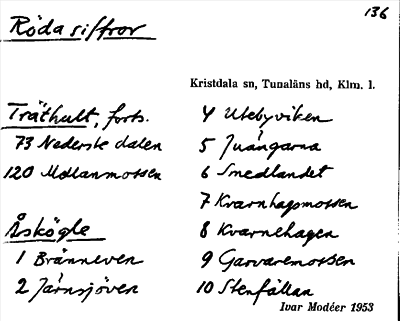 136
Röda siffror
Kristdala sn, Tunaläns hd, Klm. l.
Träthult, forts.
73 Nederste dalen
120 Mellanmossen
Åskögle
1 Bränneven
2 Järnsjöven
4 Utebyviken
5 Juångarna
6 Smedlandet
7 Kvarnhagsmossen
8 Kvarnehagen
9 Garvaremossen
10 Stenfällan
Ivar Modéer 1953